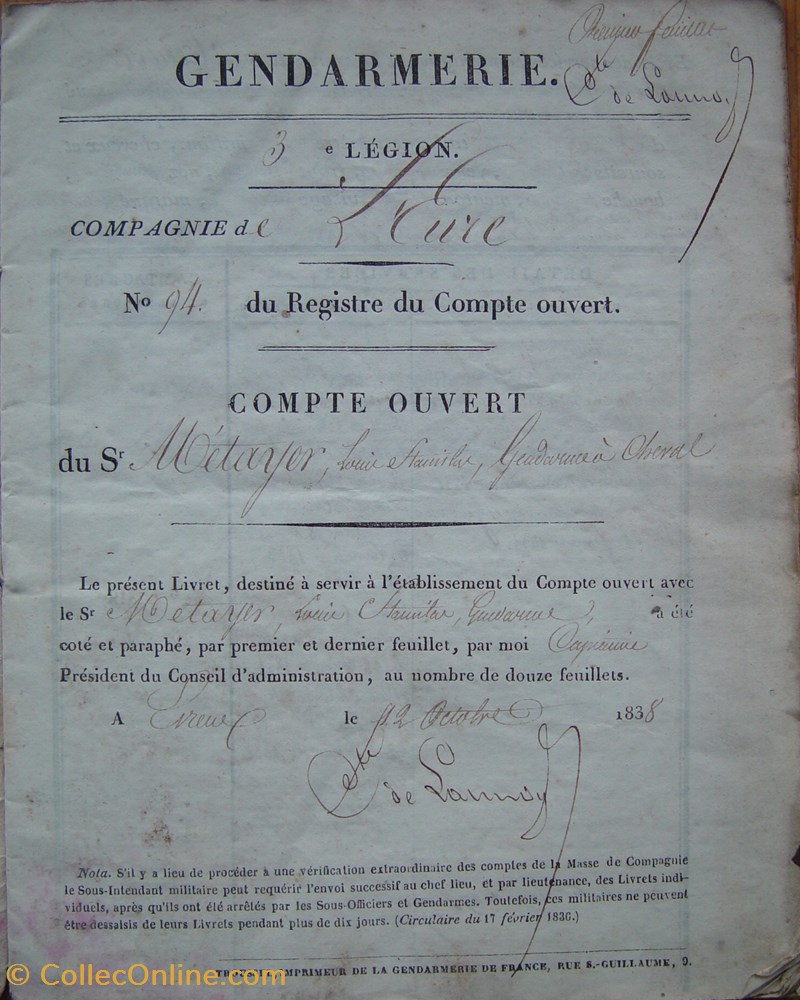 Premier feuillet
GENDARMERIE.
Cte de Launoy
3 e LÉGION.
COMPAGNIE de L'Eure
No 94. du Registre du Compte ouvert.
COMPTE OUVERT
du Sr Métayer, Louis Stanislas, Gendarme à Cheval
Le présent Livret, destiné à servir à l'établissement du Compte ouvert avec
le Sr Métayer, Louis Stanislas, Gendarme, a été
coté et paraphé, par premier et dernier feuillet, par moi Capitaine
Président du Conseil d'administration, au nombre de douze feuillets.
A Evreux le 12 Octobre 1838
Cte de Launoy
Nota. S'il y a lieu de procéder à une vérification extraordinaire des comptes de la Masse de Compagnie
le Sous-Intendant militaire peut requérir l'envoi successif au chef lieu, et par lieutenance, des Livrets indi-
viduels, après qu'ils ont été arrêtés par les Sous-Officiers et Gendarmes. Toutefois, ces militaires ne peuvent
être dessaisis de leurs Livrets pendant plus de dix jours. (Circulaire du 17 février 1836.)
IMPRIMEUR DE LA GENDARMERIE DE FRANCE, RUE S.-GUILLAUME, 9.
© CollecOnline.com